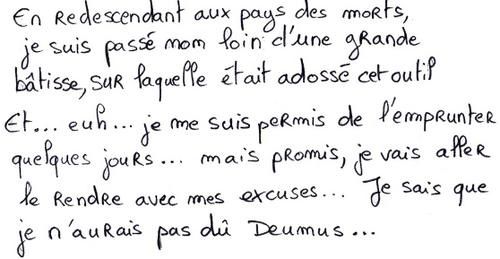 En redescendant aux pays des morts,
je suis passé mom loin d'une grande
bâtisse, sur laquelle était adossé cet outil
Et... euh... je me suis permis de l'emprunter
quelques jours... mais promis, je vais aller
le rendre avec mes excuses... Je sais que
je n'aurais pas dû Deumus...